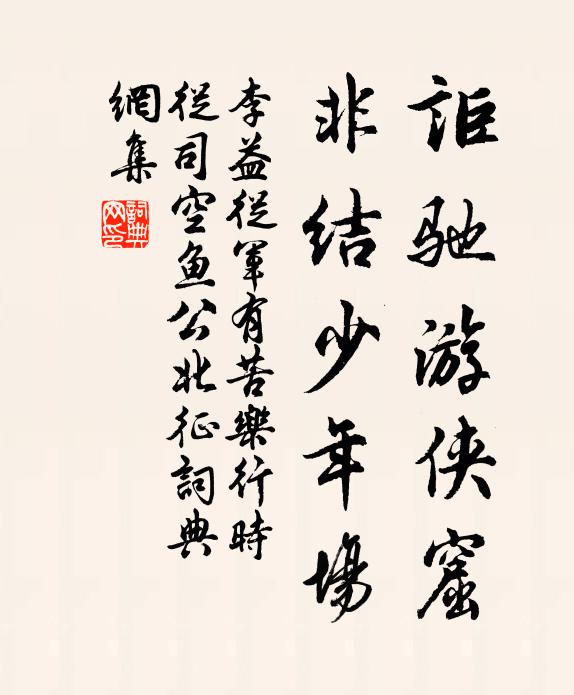 詎馳游侠窟
非结少年場
李益從軍有苦樂行時
從司空鱼公北征詞典
網集
詞典網印